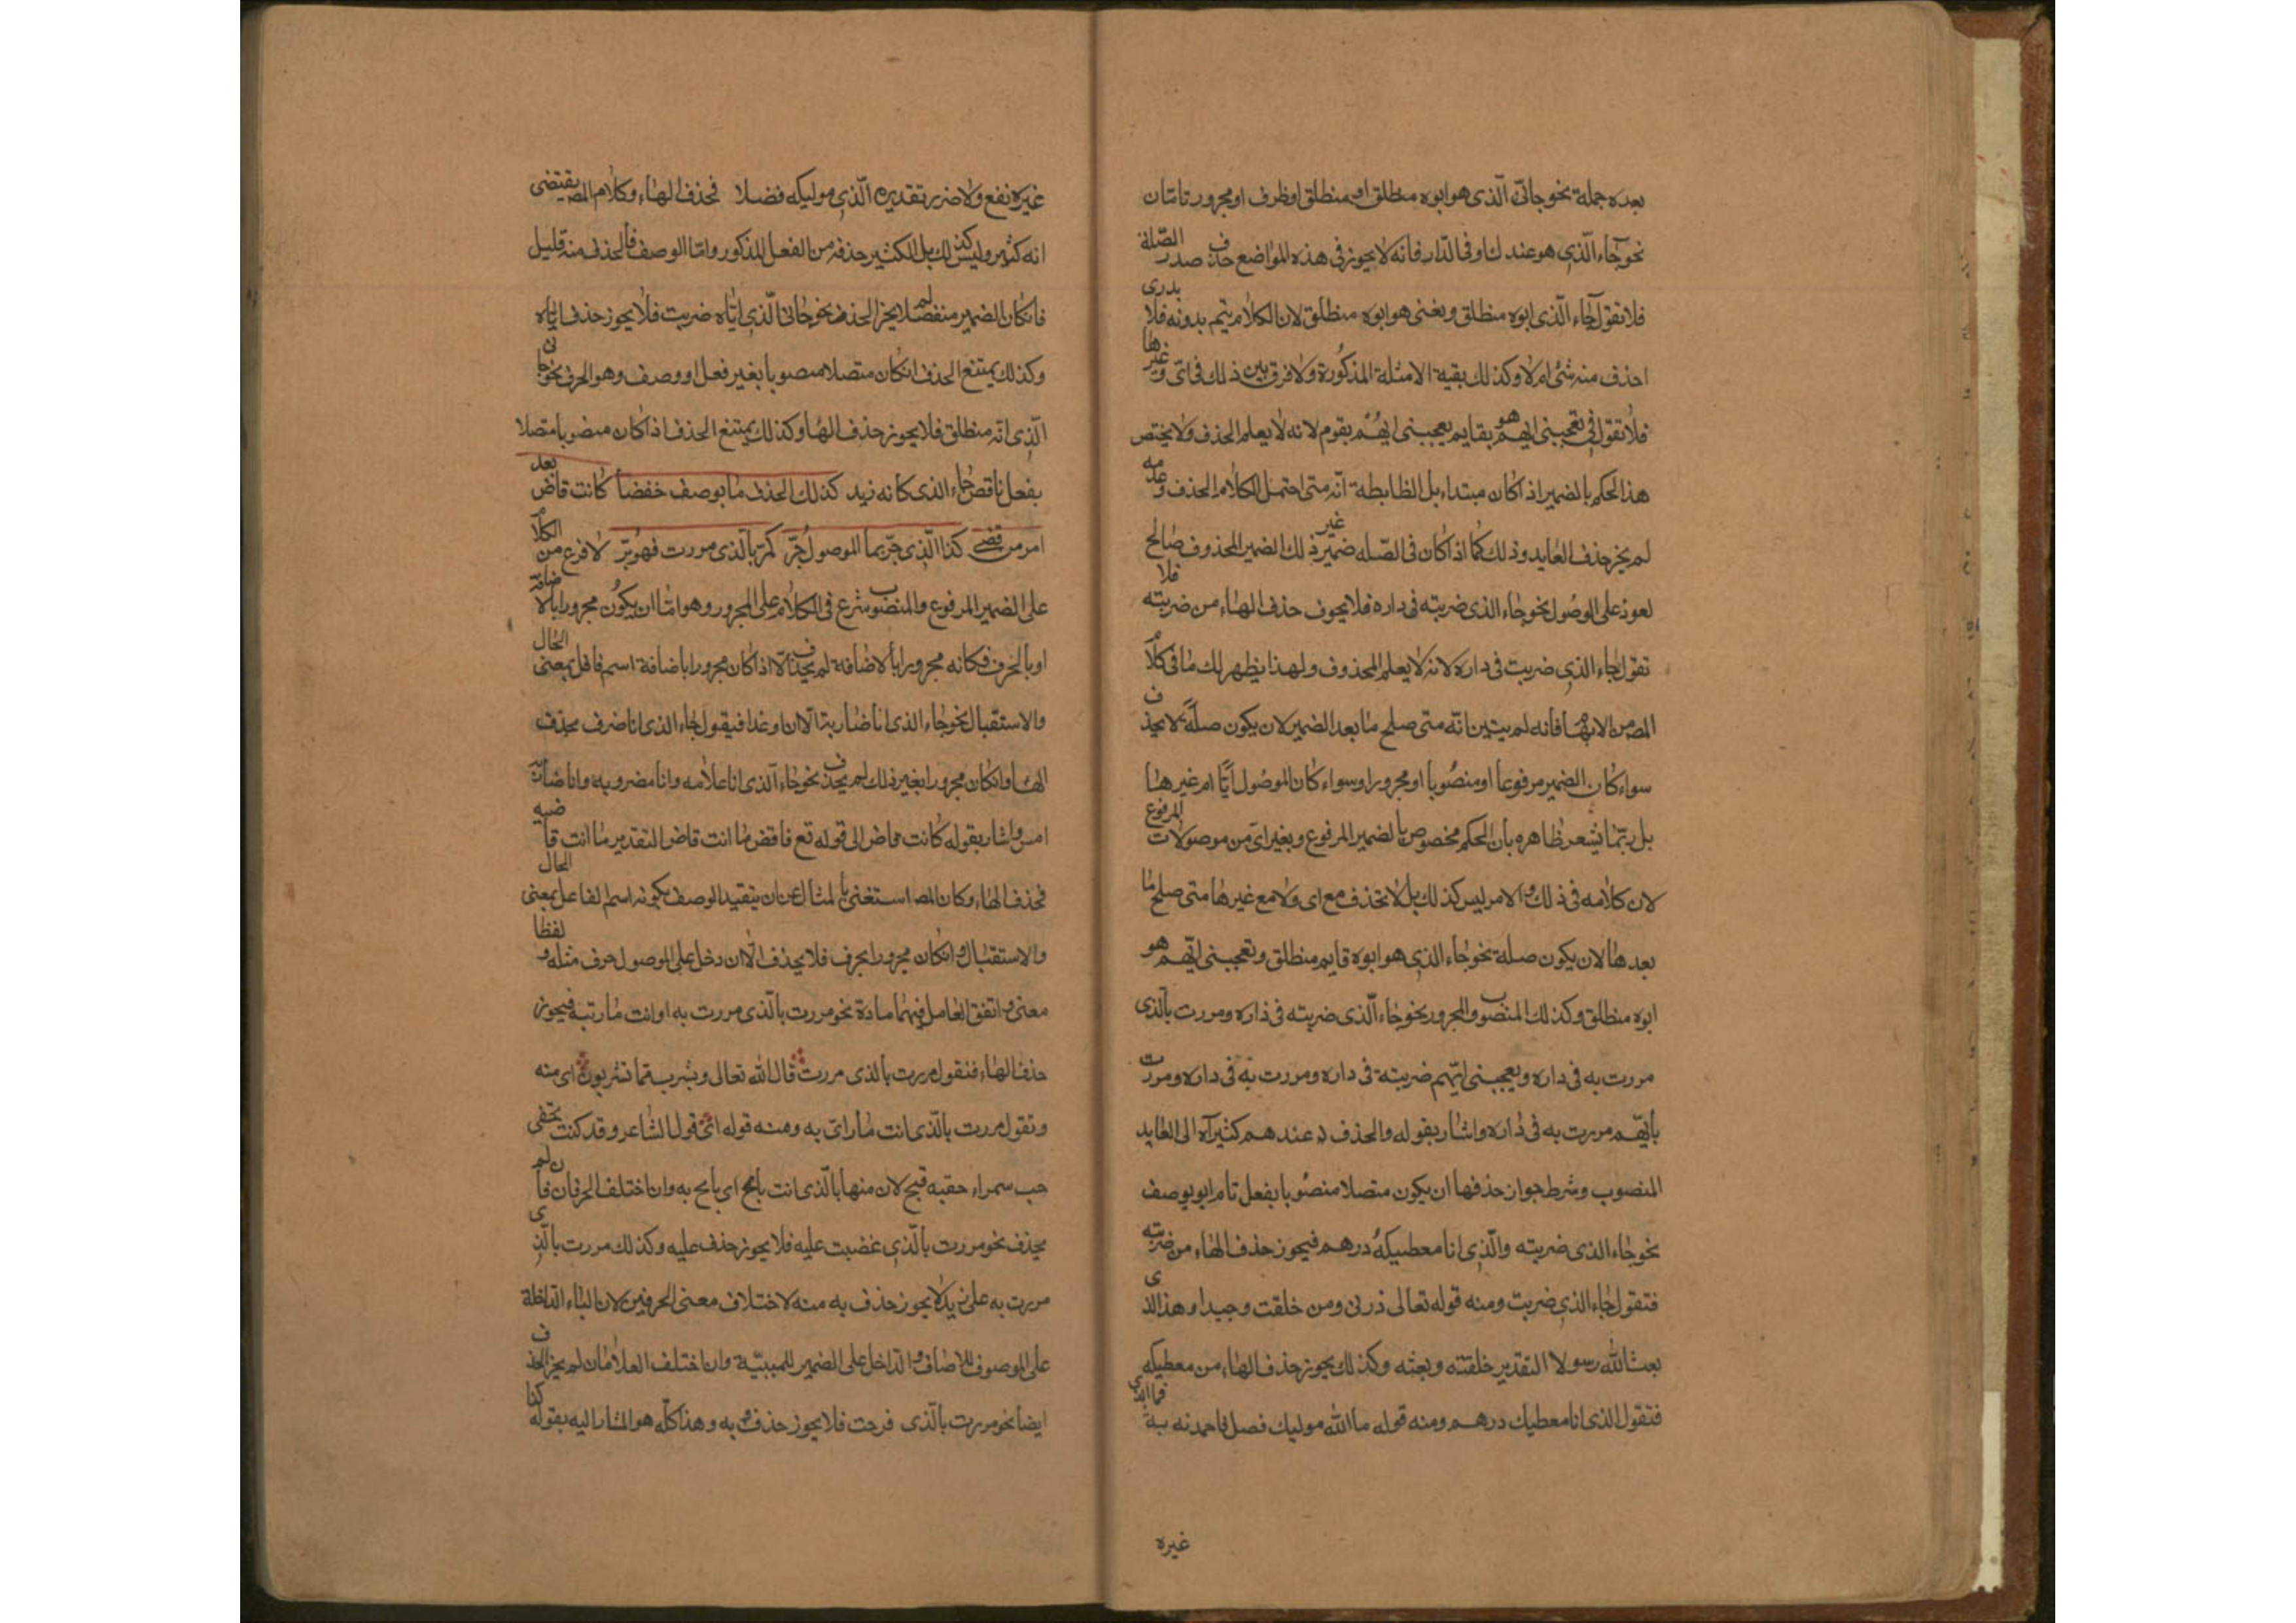 بعده جملة نحو جاني الّذى هو ابوه منطلق او منطلق او ظرف او مجرور تامّان
نحو جٰاء الّذي هو عندك او فى الدّار فانّه لا يجوز فى هذه المواضع حذف صدر الصّلة
فلا تقول جٰاء الّذى ابوه منطلق وتعنى هو ابوه منطلق لان الكلام يتم بدونه فلا يدرى
احذف منه شئ ام لا وكذلك بقية الامثلة المذكورة ولا فرق بين ذلك فى اىّ وغيرها
فلا تقول فى تعجبنى ايهم هو يقايم يعجبنى ايهُم يقوم لانه لا يعلم الحذف ولا يختص
هذا الحكم بالضمير اذا كان مبتداء بل الظابطة انّه متى احتمل الكلام الحذف وعدمه
لم يجز حذف العايد وذلك كما اذا كان فى الصّله ضمير غير ذلك الضمير المحذوف صٰالح
لعوذ على الوصُول نحو جٰاء الذى ضربته فى داره فلا يجوف حذف الهاء من ضربته فلا
تقول جٰاء الذي ضربت فى داره لانه لا يعلم المحذوف ولهذا يظهر لك مٰا فى كلام
المص من الابهام فأنه لم يبيّن انّه متى صلح مٰا بعد الضمير لان يكون صلةً لا يحذف
سواء كان الضمير مرفوعا او منصُوبا او مجرورا وسواء كان الموصُول أيّا ام غيرهٰا
بل ربّما يشعر ظاهره بأن الحكم مخصوص بالضمير المرفوع وبغير اىّ من موصولات المرفوع
لان كلامه فى ذلك والامر ليس كذلك بل لا تحذف مع اى ولا مع غيرها متى صلح مٰا
بعدهٰا لان يكون صلة نحو جٰاء الذي هو ابوه قايم منطلق وتعجبنى ايّهم هو
ابوه منطلق وكذلك المنصوب والمجرور نحو جٰاء الّذى ضربته فى ذاره ومررت بالّذى
مررت به فى داره ويعجبنى ايّهم ضربته فى داره ومررت به فى داره ومررت
بأيّهم مررت به فى دٰاره واشار بقوله والحذف عندهم كثير آه الى العايد
المنصوب وشرط جواز حذفها ان يكون متصلا منصُوبا بفعل تام او بوصف
نحو جٰاء الذى ضربته والّذي انا معطيكهُ درهم فيجوز حذف الهاء من ضربته
فتقول جٰاء الذي ضربت ومنه قوله تعالى ذرنى ومن خلقت وحيدا وهذا الذى
بعث الله رسولا التقدير خلقته وبعثه وكذلك يجوز حذف الهاء من معطيكه
فتقول الذى انا معطيك درهم ومنه قوله ما الله موليك فضل فاحمدنه به فما لذى
غيره
غيره نفع ولا ضرر تقديره الّذي موليكه فضلا فحذف الهاء وكلام المص يقتضى
انه كثير وليس كذلك بل الكثير حذفه من الفعل المذكور وامّا الوصف فالحذف منه قليل
فان كان الضمير منفصلا لم يجز الحذف نحو جٰانى الّذي ايّاه ضربت فلا يجوز حذف ايّاه
وكذلك يمتنع الحذف ان كان متصلا منصوبا بغير فعل او وصف وهو الحرف نحو جانى
الّذي انّه منطلق فلا يجوز حذف الهٰا وكذلك يمتنع الحذف اذا كان منصوبا متصلا
بفعل ناقص جٰاء الذى كانه زيد كذلك الحذف مٰا بوصف خفضا كانت قاض بعد
امر من قضى كذا الّذي جرّ بما الموصول جُرّ كمرّ بالّذى مررت فهو برّ لما فرغ من الكلام
على الضمير المرفوع والمنصوب شرع فى الكلام على المجرور وهو امّا ان يكون مجرورا بالاضافة
او بالحرف فكانه مجرورا بالاضافة لم يحذف الّا اذا كان مجرورا باضافة اسم فاعل بمعنى الحال
والاستقبال نحو جٰاء الذى انا ضٰاربه الآن او غدا فيقول جٰاء الذى انا ضرف بحذف
الهٰا وان كان مجرورا بغير ذلك لم يحذف نحو جٰاء الّذى انا غلامه وانا مضروبه وانا ضاربه
امس واشار بقوله كانت قاض الى قوله تع فاقض مٰا انت قاض التقدير مٰا انت قاضيه
فحذف الهاء وكان المص استغنى بالمثال عن ان يتقيد الوصف بكونه اسم الفاعل بمعنى الحال
والاستقبال وان كان مجرورا بحرف فلا يحذف الّا ان دخل على الموصول حرف مثله لفظا و
معنى واتفق العامل فيهما مادة نحو مررت بالّذى مررت به او انت مٰار به فيجوز
حذف الهاء فنقول مررت بالذى مررت قال الله تعالى ويشرب مما تشربون اى منه
وتقول مررت بالّذى انت مٰار اىّ به ومنه قوله اى قول الشٰاعر وقد كنت تخفى
حب سمراء حقبه فبح لان منها بالّذى انت بايح اى بايح به وان اختلف الحرفان لم
يحذف نحو مررت بالّذي غضبت عليه فلا يجوز حذف عليه وكذلك مررت بالّذي
مررت به على زيد لا يجوز حذف به منه لاختلاف معنى الحرفين لان الباء الدّاخلة
على الموصوف للاصاف والدّاخل على الضمير للسببيّة وان اختلف العلامان لم يجز الحذف
ايضا نحو مررت بالّذى فرحت فلا يجوز حذف به وهذا كلّه هو المشار اليه بقوله كذا